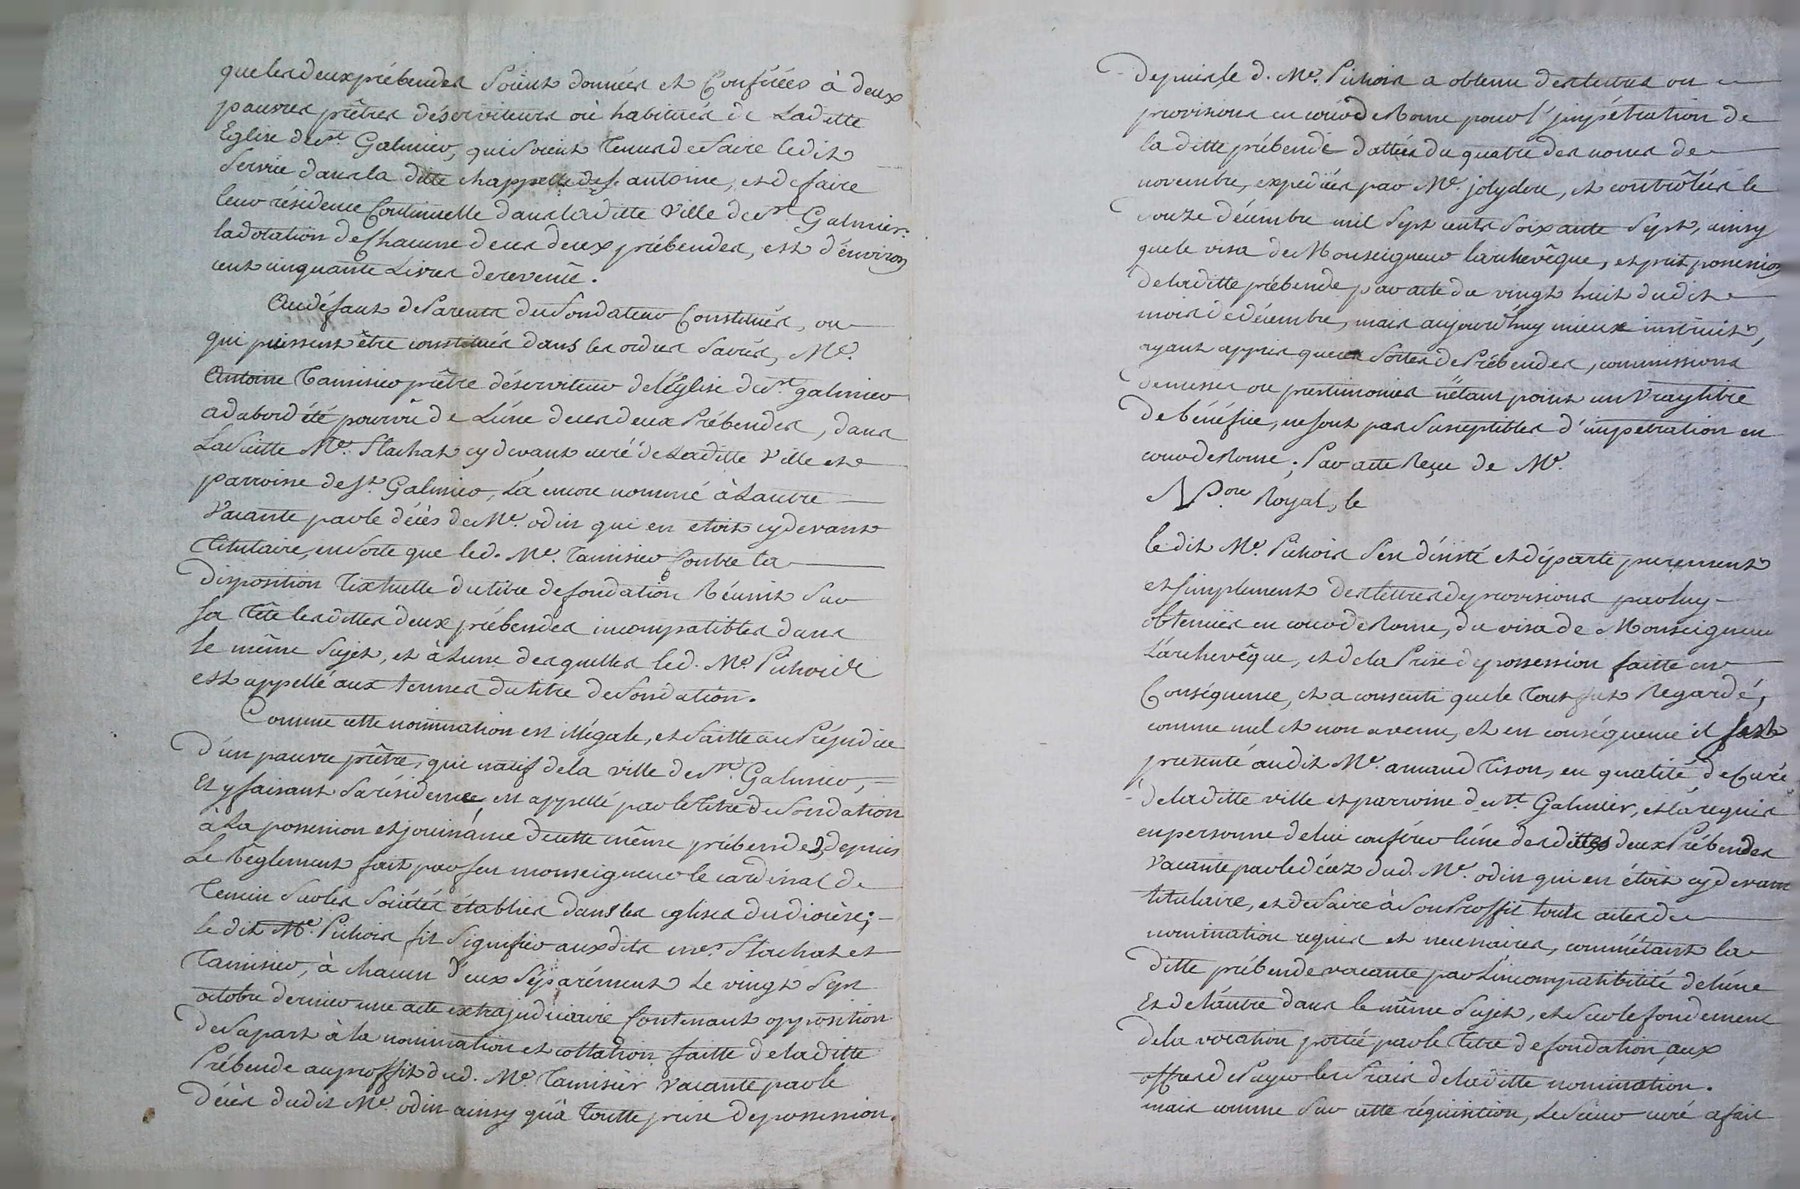 que les deux prébendes soient données et Conférées à deux
pauvres prêtres déserviteurs où habitués de Laditte
Eglise de st. Galmier, qui soient Tenus de faire ledit
Service dans la ditte chappelle de st antoine, et de faire
leur résidence Continuelle dans laditte Ville de st. Galmier.
la dotation de Chacune de ces deux prébendes, est d'environ
cent cinquante Livres de revenu.
Au défaut de Parents du fondateur Constitués, ou
qui puissent être constitués dans les ordres sacrés, Me.
Antoine Tamisier prêtre déserviteur de l'église de st. galmier
a d'abord été pourvû de L'une de ces deux Prébendes, dans
La suitte Me. Flachat cy devant curé de Laditte Ville et
parroisse de st. Galmier, L'a encore nommé à L'autre
Vacante par le décès de Me. odin qui en etoit cy devant
Titulaire, en sorte que led. Me. Tamisier Contre la
Disposition Textuelle du titre de fondation Réunit sur
sa Tête les dittes deux prébendes incompatibles dans
le même sujet, et à L'une desquelles led. Me. Pichois
est appellé aux termes du titre de fondation.
Comme cette nomination est illégale, et faitte au Préjudice
D'un pauvre prêtre, qui natif de la ville de st. Galmier,
Et y faisant sa résidence, est appellé par le Titre de fondation
à La possession et jouissance de cette même prébende, depuis
Le Règlement fait par feu monseigneur le cardinal de
Tencin sur les Sociétés établies dans les eglises du diocèse;
le dit Me. Pichois fit signifier auxdits mes. Flachat et
Tamisier, à chacun d'eux séparément Le vingt sept
octobre dernier une acte extrajudiciaire Contenant opposition
de sa part à la nomination et collation faitte de laditte
Prébende au proffit dud. Me. Tamisier Vacante par le
Décès dudit Me. odin ainsy qu'à Toutte prise de possession.
Depuis le d. Me. Pichois a obtenu des lettres ou
provisions en cour de Rome pour l'impétration de
la ditte prébende dattées du quatre des nones de
novembre, expediées par Me. jolyclerc, et contrôlées le
douze décembre mil sept cents soixante sept, ainsy
que le visa de Monseigneur l'archevêque, et prit possession
de laditte prébende par acte du vingt huit dudit
mois de décembre, mais aujourd'huy mieux instruit,
ayant appris que ces sortes de Prébendes, commissions
de messes ou prestimonies n'étant point un Vray titre
de bénéfice, ne sont pas susceptibles d'impetration en
cour de Rome; Par acte Reçu de Me.
Nore. Royal, le
le dit Me. Pichois s'en désisté et départi purement
et simplement des lettres de provisions par luy
obtenües en cour de Rome, du visa de Monseigneur
L'archevêque, et de la Prise de possession faitte en
Conséquence, et a consenti que le Tout fut Regardé,
comme nul et non avenu, et en conséquence il s'est
presenté audit Me. arnaud Tison, en qualité de Curé
de laditte ville et parroisse de st. Galmier, et l'a requis
en personne de lui conférer l'une desdittes deux Prébendes
Vacante par le décez dud. Me. odin qui en étoit cy devant
titulaire, et de faire à son Proffit touts actes de
nomination requis et necessaires, comm'étant la
Ditte prébende vacante par L'incompatibilité de l'une
Et de l'autre dans le même sujet, et sur le fondement
de la vocation portée par le Titre de fondation, aux
offres de Payer les frais de laditte nomination.
mais comme sur cette réquisition, Le sieur curé a fait